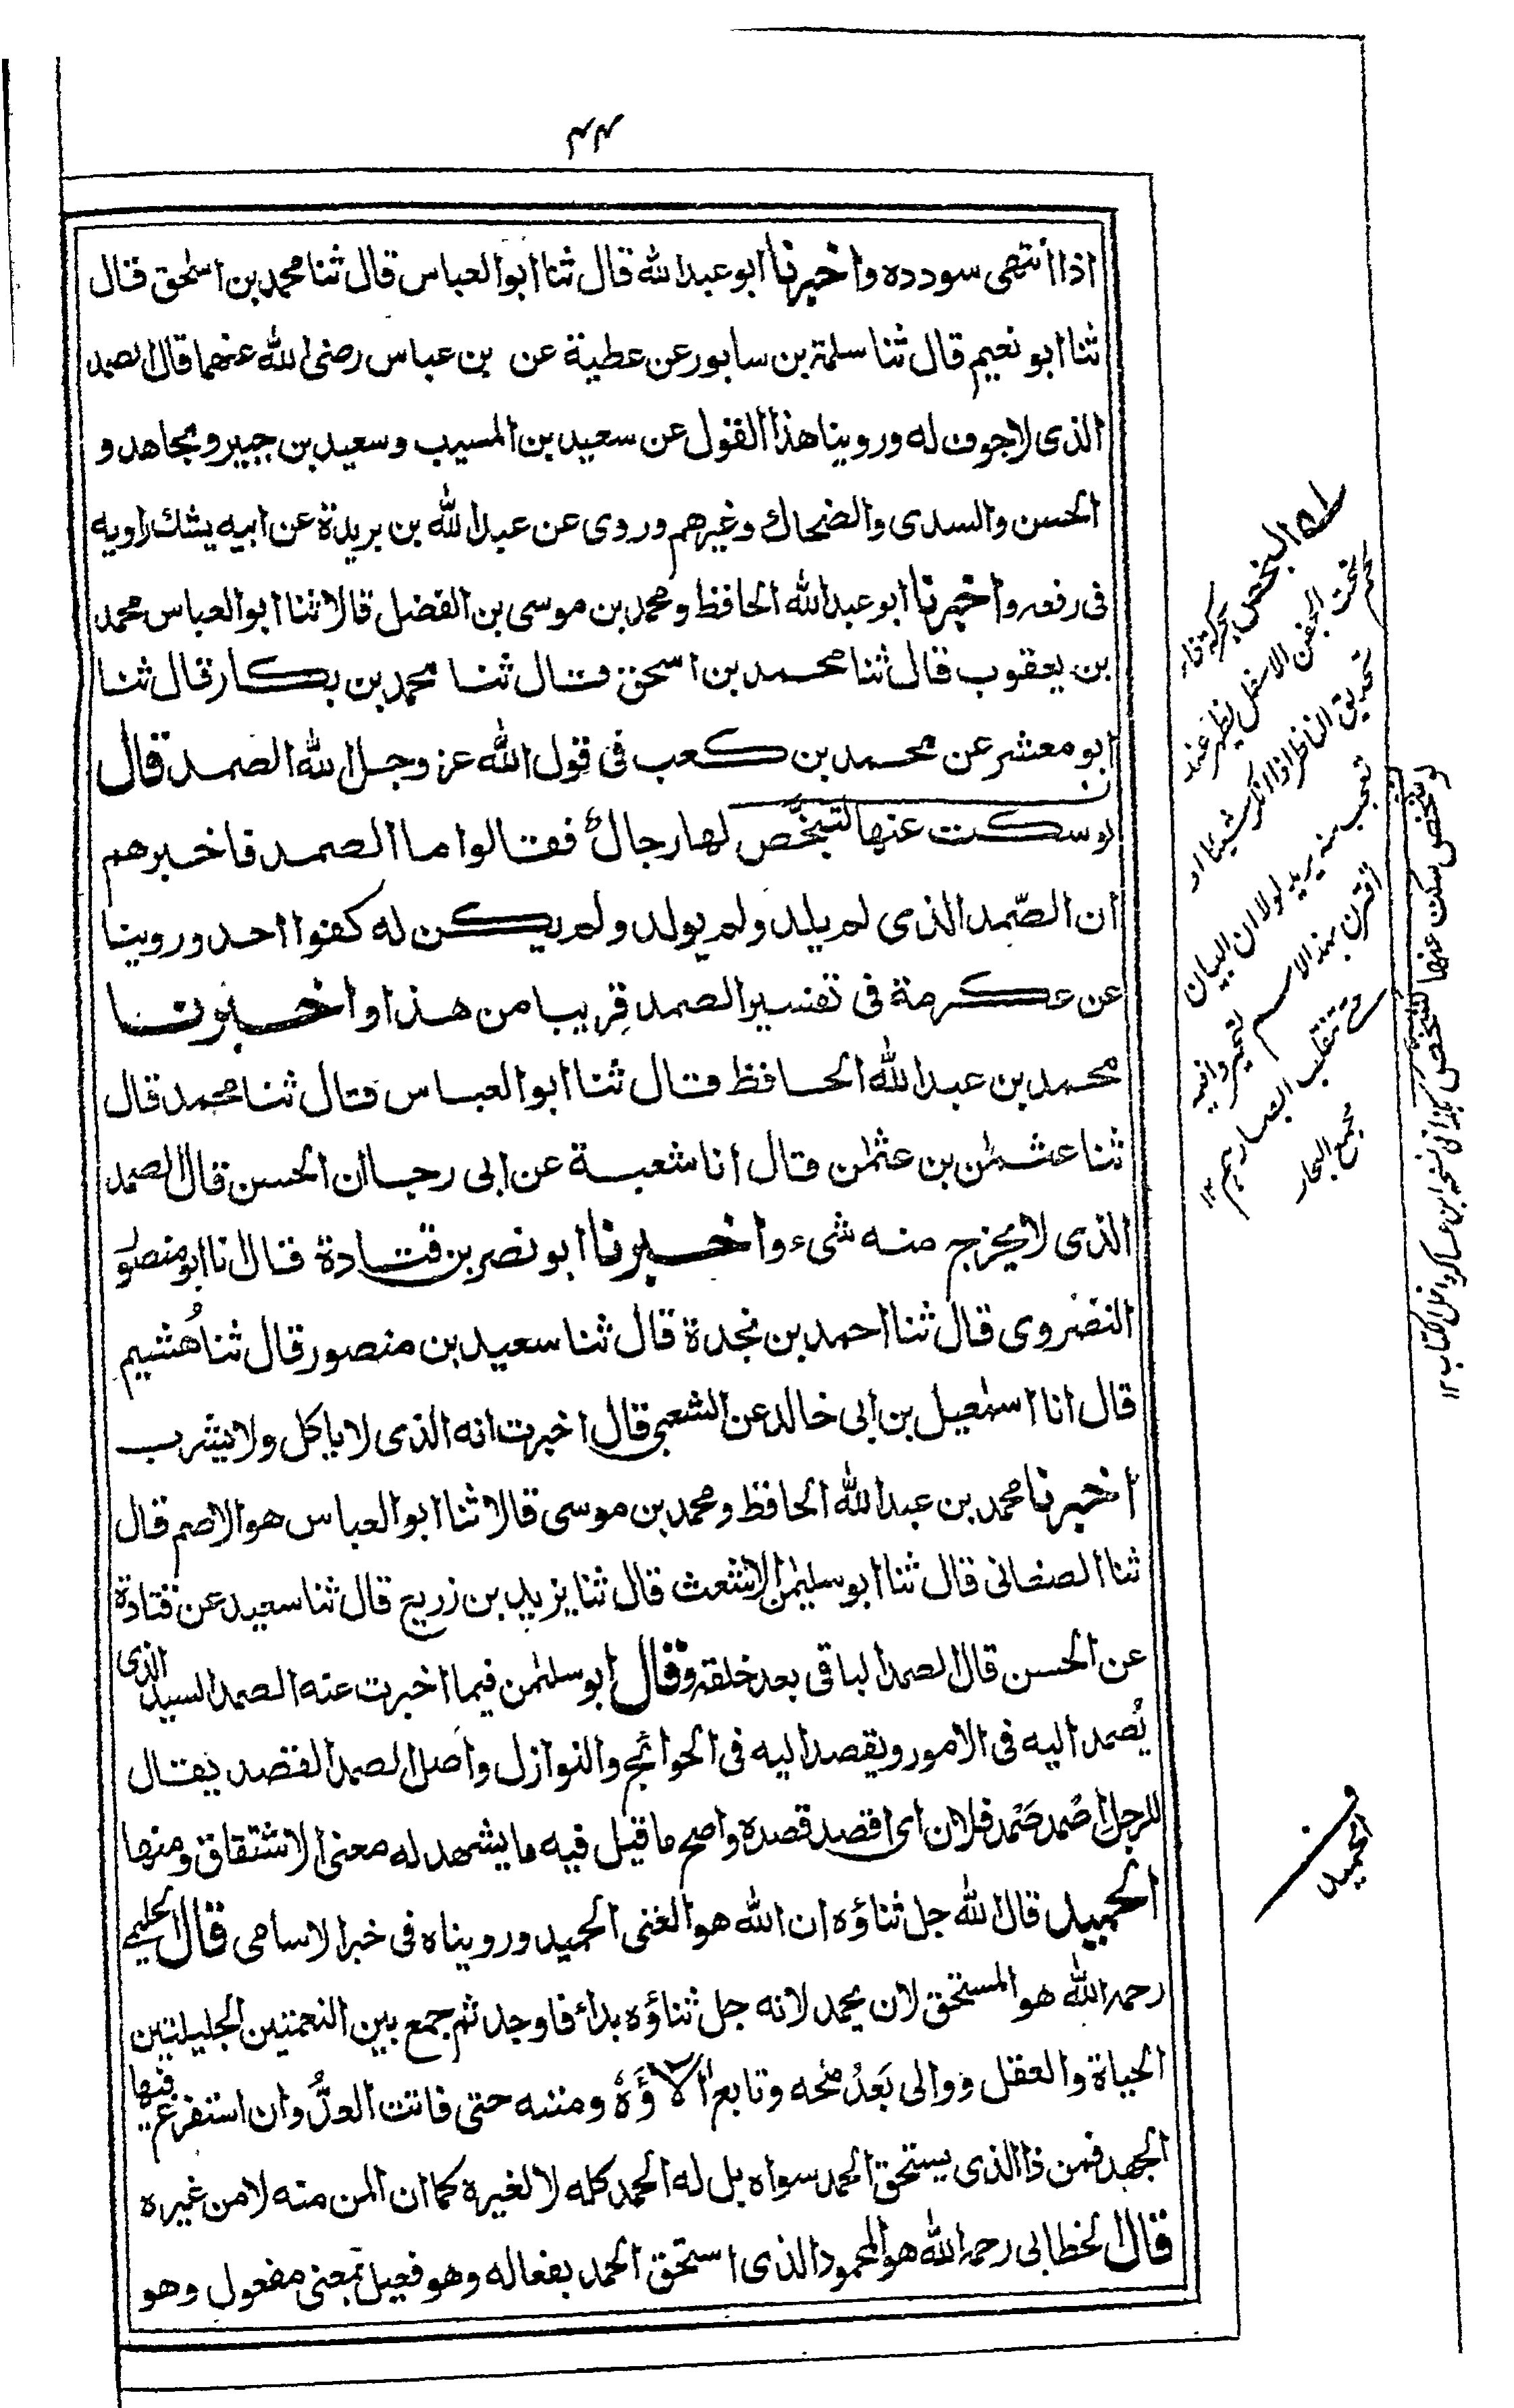 ۴۴
اذا أنتهى سودده واخبرنا ابو عبد الله قال ثنا ابو العباس قال ثنا محمد بن اسحٰق قال
ثنا ابو نعيم قال ثنا سلمة بن سابور عن عطية عن بن عباس رضى الله عنهما قال الصمد
الذى لاجوف له وروينا هذا القول عن سعيد بن المسيب وسعيد بن جبير ومجاهد و
الحسن والسدى والضحاك وغيرهم وروى عن عبد الله بن بريدة عن ابيه يشك راويه
فى رفعه واخبرنا ابو عبد الله الحافظ ومحمد بن موسى بن الفضل قالا ثنا ابو العباس محمد
بن يعقوب قال ثنا محمد بن اسحق قال ثنا محمد بن بكار قال ثنا
ابو معشر عن محمد بن كعب فى قول الله عز وجل الله الصمد قال
لو سكت عنها لتبخّص لها رجال فقالوا ما الصمد فاخبرهم
ان الصّمد الذى لم يلد ولم يولد ولم يكن له كفوا احد وروينا
عن عكرمة فى تفسير الصمد قريبا من هذا واخبرنا
محمد بن عبد الله الحافظ قال ثنا ابو العباس قال ثنا محمد قال
ثنا عثمٰن بن عثمٰن قال انا شعبة عن ابى رجا ان الحسن قال الصمد
الذى لا يخرج منه شىء واخبرنا ابو نصر بن قتادة قال انا ابو منصور
النضروى قال ثنا احمد بن نجدة قال ثنا سعيد بن منصور قال ثنا هُشيم
قال انا اسمٰعيل بن ابى خالد عن الشعبى قال اخبرت انه الذى لا ياكل ولا يشرب
اخبرنا محمد بن عبد الله الحافظ ومحمد بن موسى قالا ثنا ابو العباس هو الاصم قال
ثنا الصغانى قال ثنا ابو سليمٰن الاشعث قال ثنا يزيد بن زريع قال ثنا سعيد عن قتادة
عن الحسن قال الصمد الباقى بعد خلقه وقال ابو سليمٰن فيما اخبرت عنه الصمد السيد الذى
يُصمد اليه فى الامور ويقصد اليه فى الحوائج والنوازل واصل الصمد القصد يقال
للرجل اصْمد صَمْد فلان اى اقصد قصده واصح ما قيل فيه ما يشهد له معنى الاشتقاق ومنها
الحميد قال الله جل ثناؤه ان الله هو الغنى الحميد ورويناه فى خبر الاسامى قال الحليمى
رحمه الله هو المستحق لان يحمد لانه جل ثناؤه بدأ فاوجد ثم جمع بين النعمتين الجليلتين
الحياة والعقل ووالى بَعدُ منحه وتابع اٰلاؤَهُ ومننه حتى فاتت العدّ وان استفرغ فيها
الجهد فمن ذا الذى يستحق الحمد سواه بل له الحمد كله لا لغيره كما ان المن منه لا من غيره
قال الخطابى رحمه الله هو المحمود الذى استحق الحمد بفعاله وهو فعيل بمعنى مفعول وهو
البخص بحركة
لحم تحت الجفن الاسفل يظهر عند
تحديق الناظر اذا انكر شيئا او
تعجب منه يريد لولا ان البيان
اقترن بهذا الاسم لتحيروا فيه
حتى تنقلب ابصارهم ١٢
مجمع البحار
الحميد